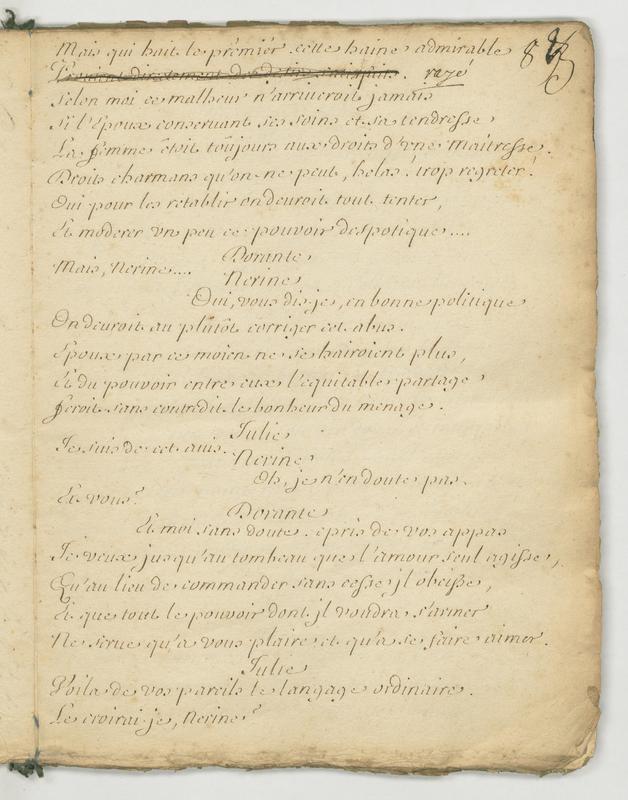 Mais qui hait le prémiér cette haine admirable 8
directement des razé
Selon moi ce malheur n'arriveroit jamais
Si l'Epoux conservant ses soins et sa tendresse
La femme étoit toûjours aux droits d'vne maîtresse.
Droits charmans qu'on ne peut, helas! trop regreter!
Oui pour les retablir on devroit tout tenter,
Et moderer vn peu ce pouvoir despotique....
Dorante
Mais, Nerine....
Nerine
Oui, vous dis-je, en bonne politique
On devroit au plûtôt corriger cet abus.
Epoux par ce moien ne se hairoient plus,
Et du pouvoir entre eux l'equitable partage
feroit sans contredit le bonheur du menage.
Julie
Je suis de cet avis.
Nerine
Oh, je n'en doute pas.
Et vous?
Dorante
Et moi sans doute. epris de vos appas
Je veux jusqu'au tombeau que l'amour seul agisse,
Qu'au lieu de commander sans cesse jl obeisse,
Et que tout le pouvoir dont jl voudra s'armer
Ne serve qu'a vous plaire et qu'a se faire aimer.
Julie
Voila de vos pareils le langage ordinaire.
Le croirai-je, Nerine?